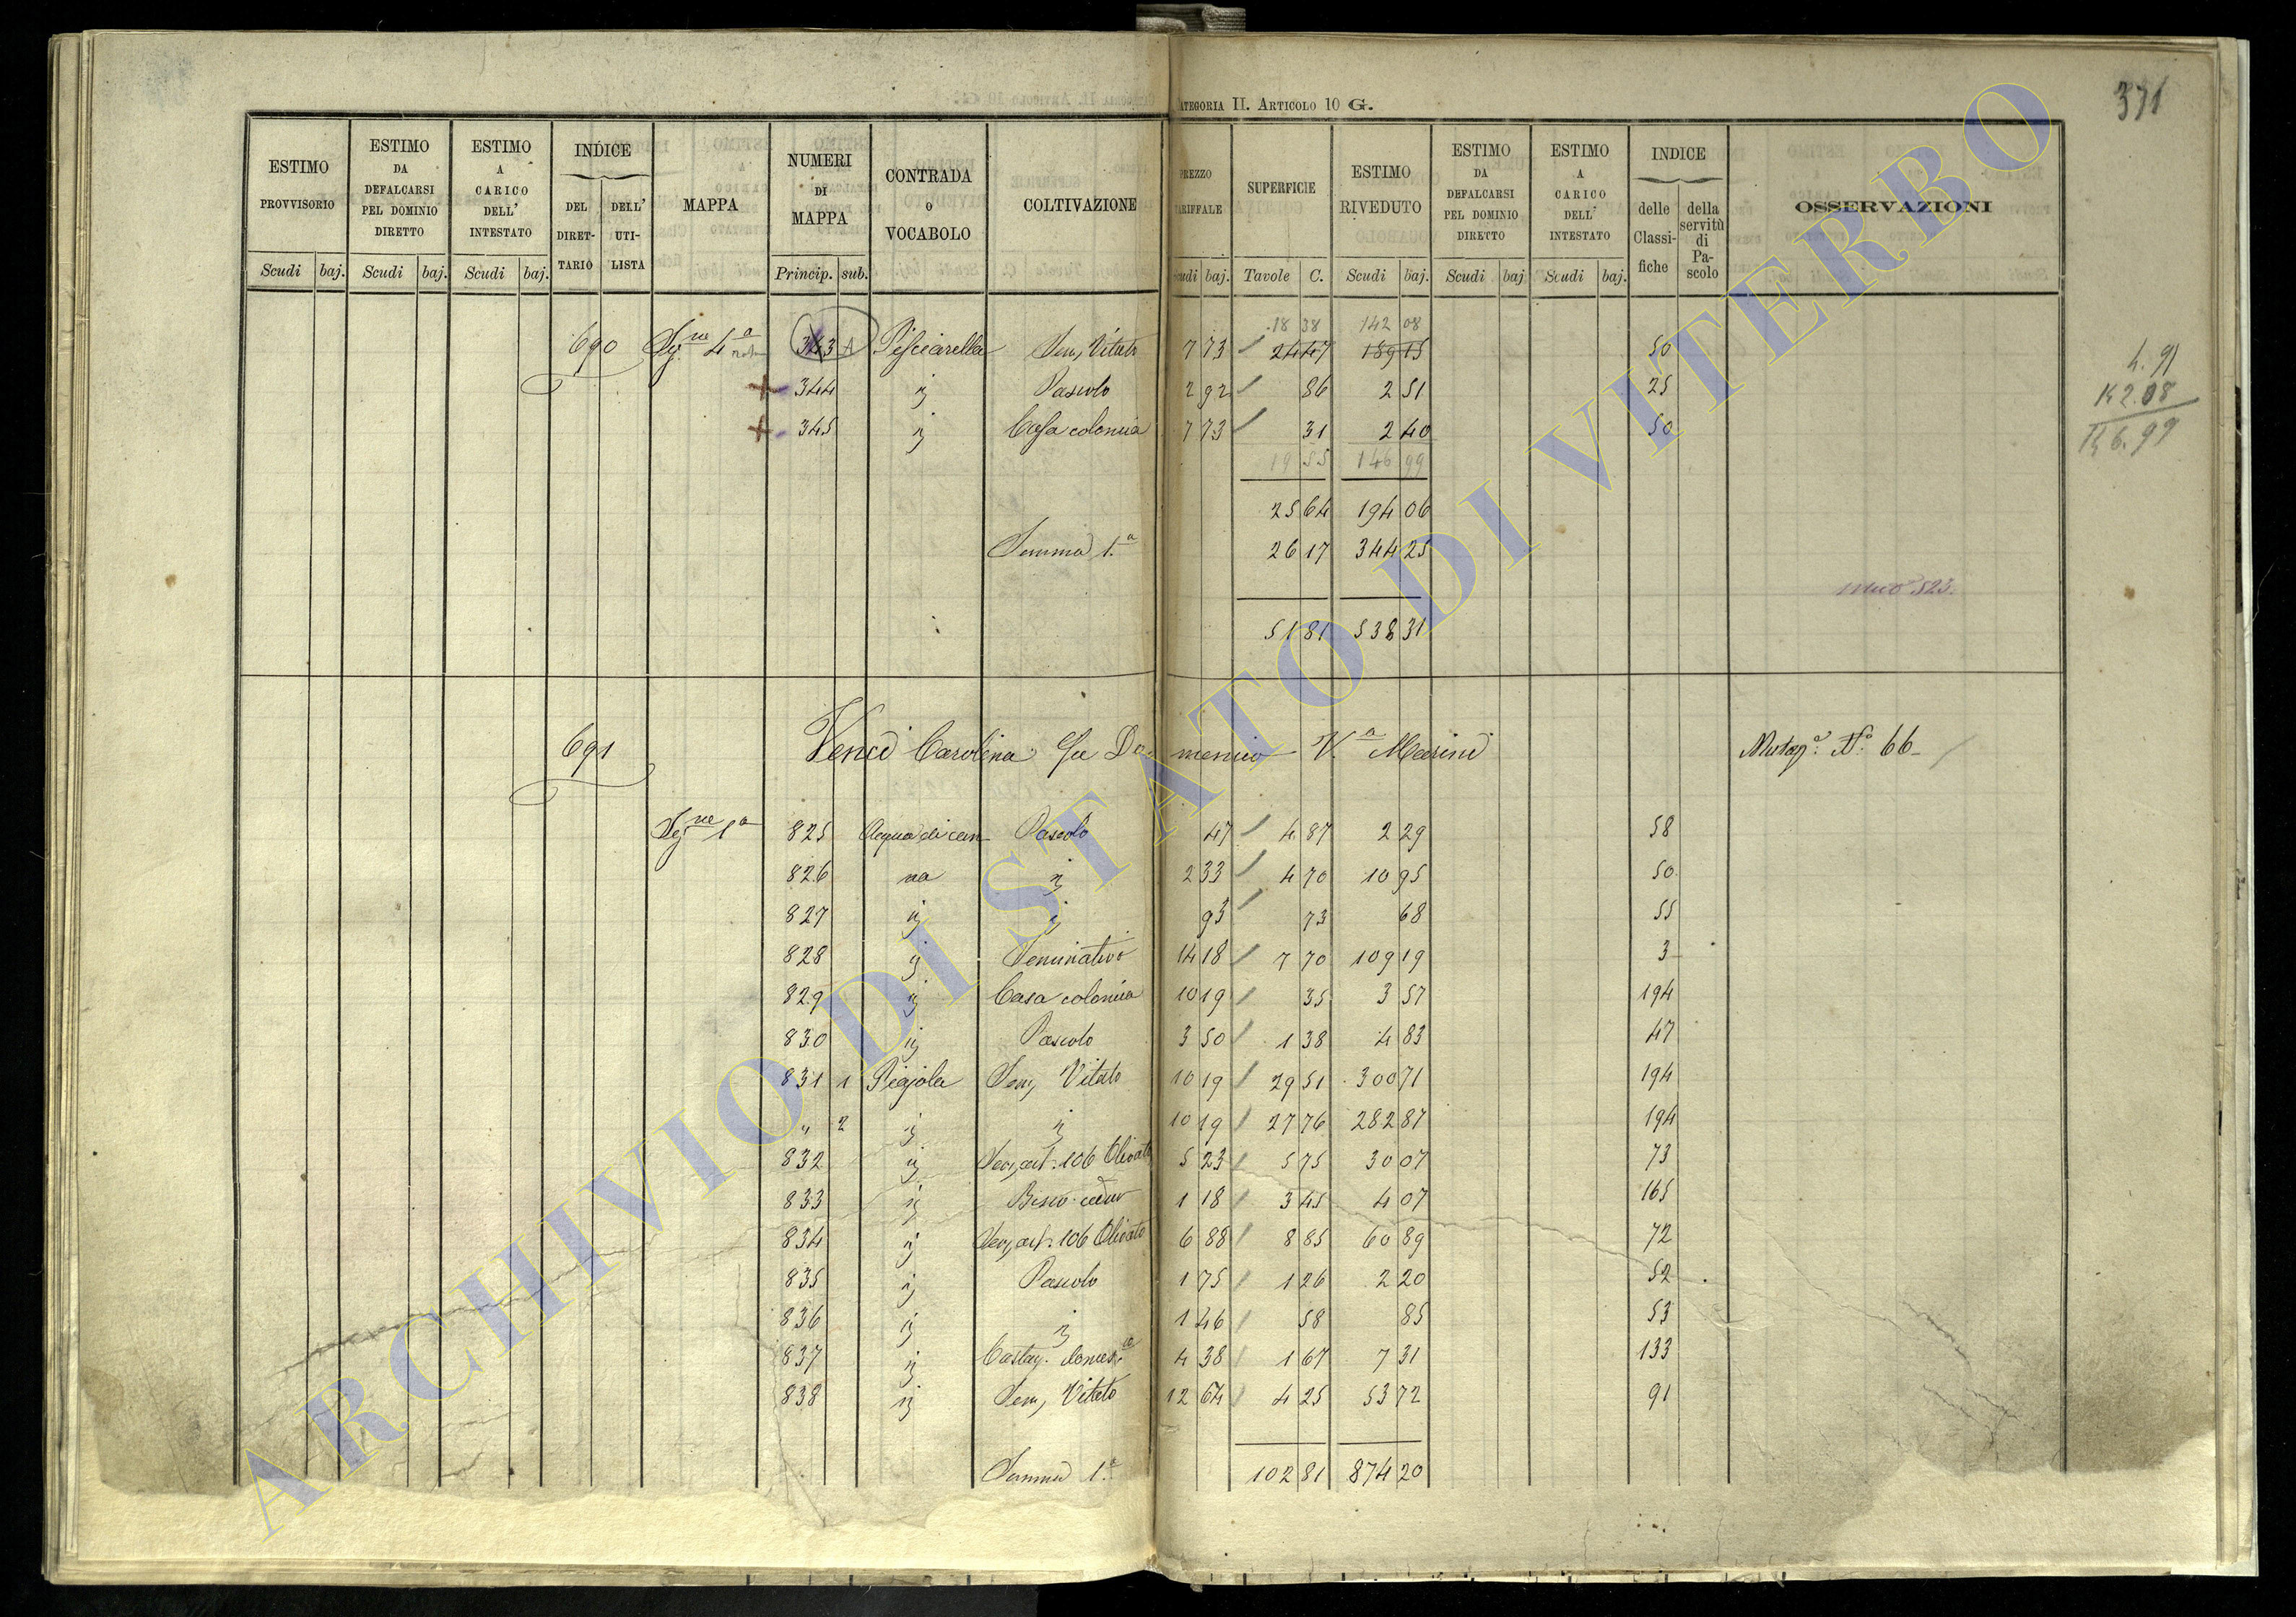 CATEGORIA II. ARTICOLO 10 G.
371
ESTIMO PROVVISORIO Scudi baj.
ESTIMO DA DEFALCARSI PEL DOMINIO DIRETTO Scudi baj.
ESTIMO A CARICO DELL' INTESTATO Scudi baj.
INDICE DEL DIRETTARIO DELL' UTILISTA
MAPPA
NUMERI DI MAPPA Princip. sub.
CONTRADA O VOCABOLO
COLTIVAZIONE
PREZZO TARIFFALE Scudi baj.
SUPERFICIE Tavole C.
ESTIMO RIVEDUTO Scudi baj.
ESTIMO DA DEFALCARSI PEL DOMINIO DIRETTO Scudi baj.
ESTIMO A CARICO DELL' INTESTATO Scudi baj.
INDICE delle Classifiche della servitù di Pascolo
OSSERVAZIONI
18 38 142 08
690 Sez.ne 4a 343 A Pisciarella Sem, Vitato 7 73 24 47 189 15 50
344 " Pascolo 2 92 86 2 51 25
345 " Casa colonica 7 73 31 2 40 50
4.91
142.08
146.99
19 55 146 99
25 64 194 06
Somma 1.a 26 17 344 25
523.
51 81 538 31
691 Venci Carolina fu Domenico V.a Marini N.o 66
Sez.ne 1a 825 Acqua di can- Pascolo 47 4 87 2 29 58
826 na " 2 33 4 70 10 95 50
827 " " 93 73 68 55
828 " Seminativo 14 18 7 70 109 19 3
829 " Casa colonica 10 19 35 3 57 194
830 " Pascolo 3 50 1 38 4 83 47
831 1 Piajola Sem, Vitato 10 19 29 51 300 71 194
" 2 " " 10 19 27 76 282 87 194
832 " Sem, art. 106 Olivato 5 23 5 75 30 07 73
833 " Bosco ceduo 1 18 3 45 4 07 165
834 " Sem, art. 106 Olivato 6 88 8 85 60 89 72
835 " Pascolo 1 75 1 26 2 20 52
836 " " 1 46 58 85 53
837 " Castag. domes.ca 4 38 1 67 7 31 133
838 " Sem, Vitato 12 64 4 25 53 72 91
Somma 1.a 102 81 874 20
ARCHIVIO DI STATO DI VITERBO